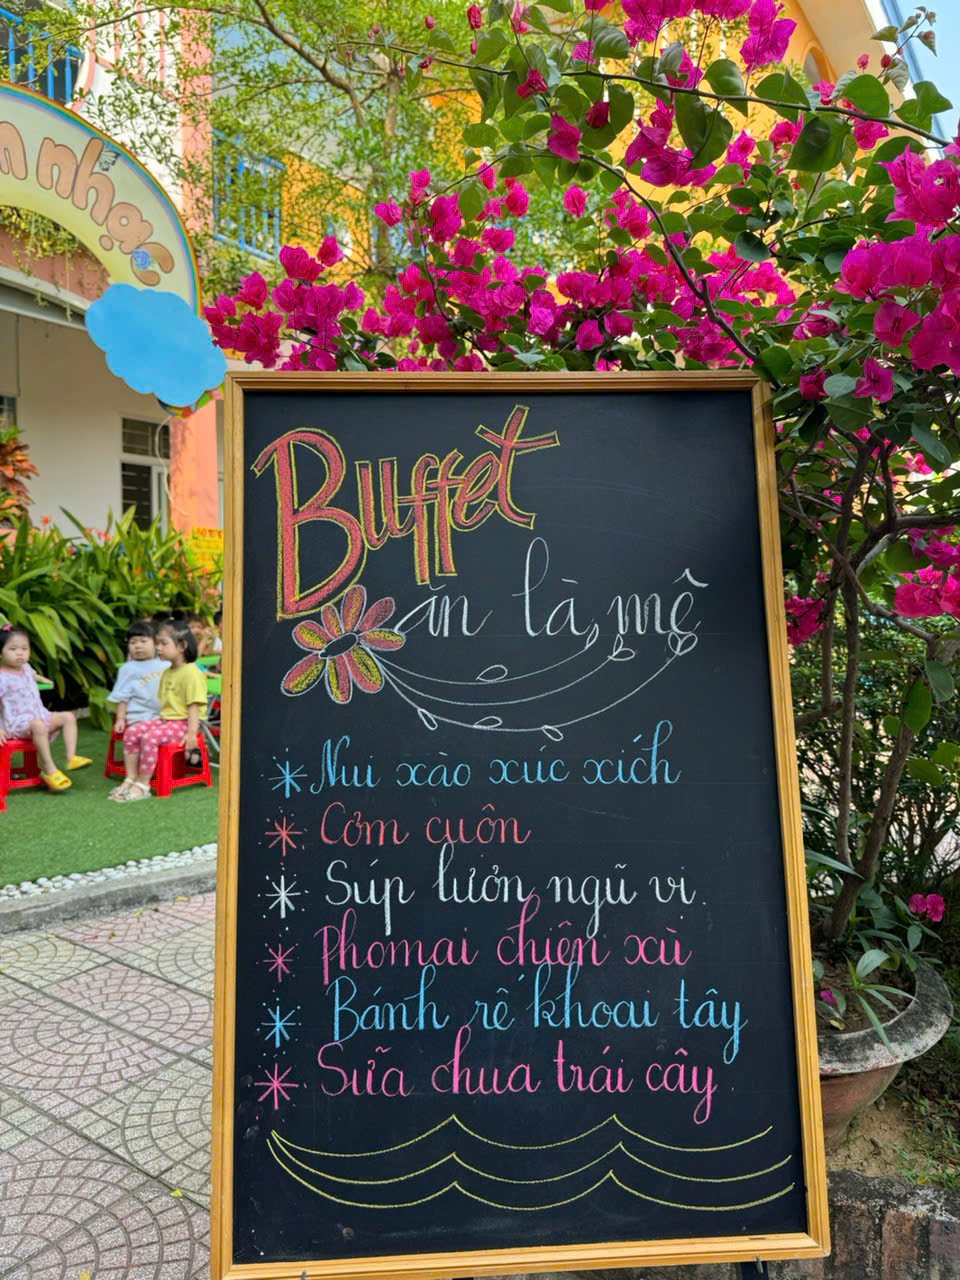 nhạc
Buffet
ăn là mê
Nui xào xúc xích
Cơm cuộn
Súp lươn ngũ vị.
Phomai chiên xù
Bánh rế khoai tây
Sữa chua trái cây.